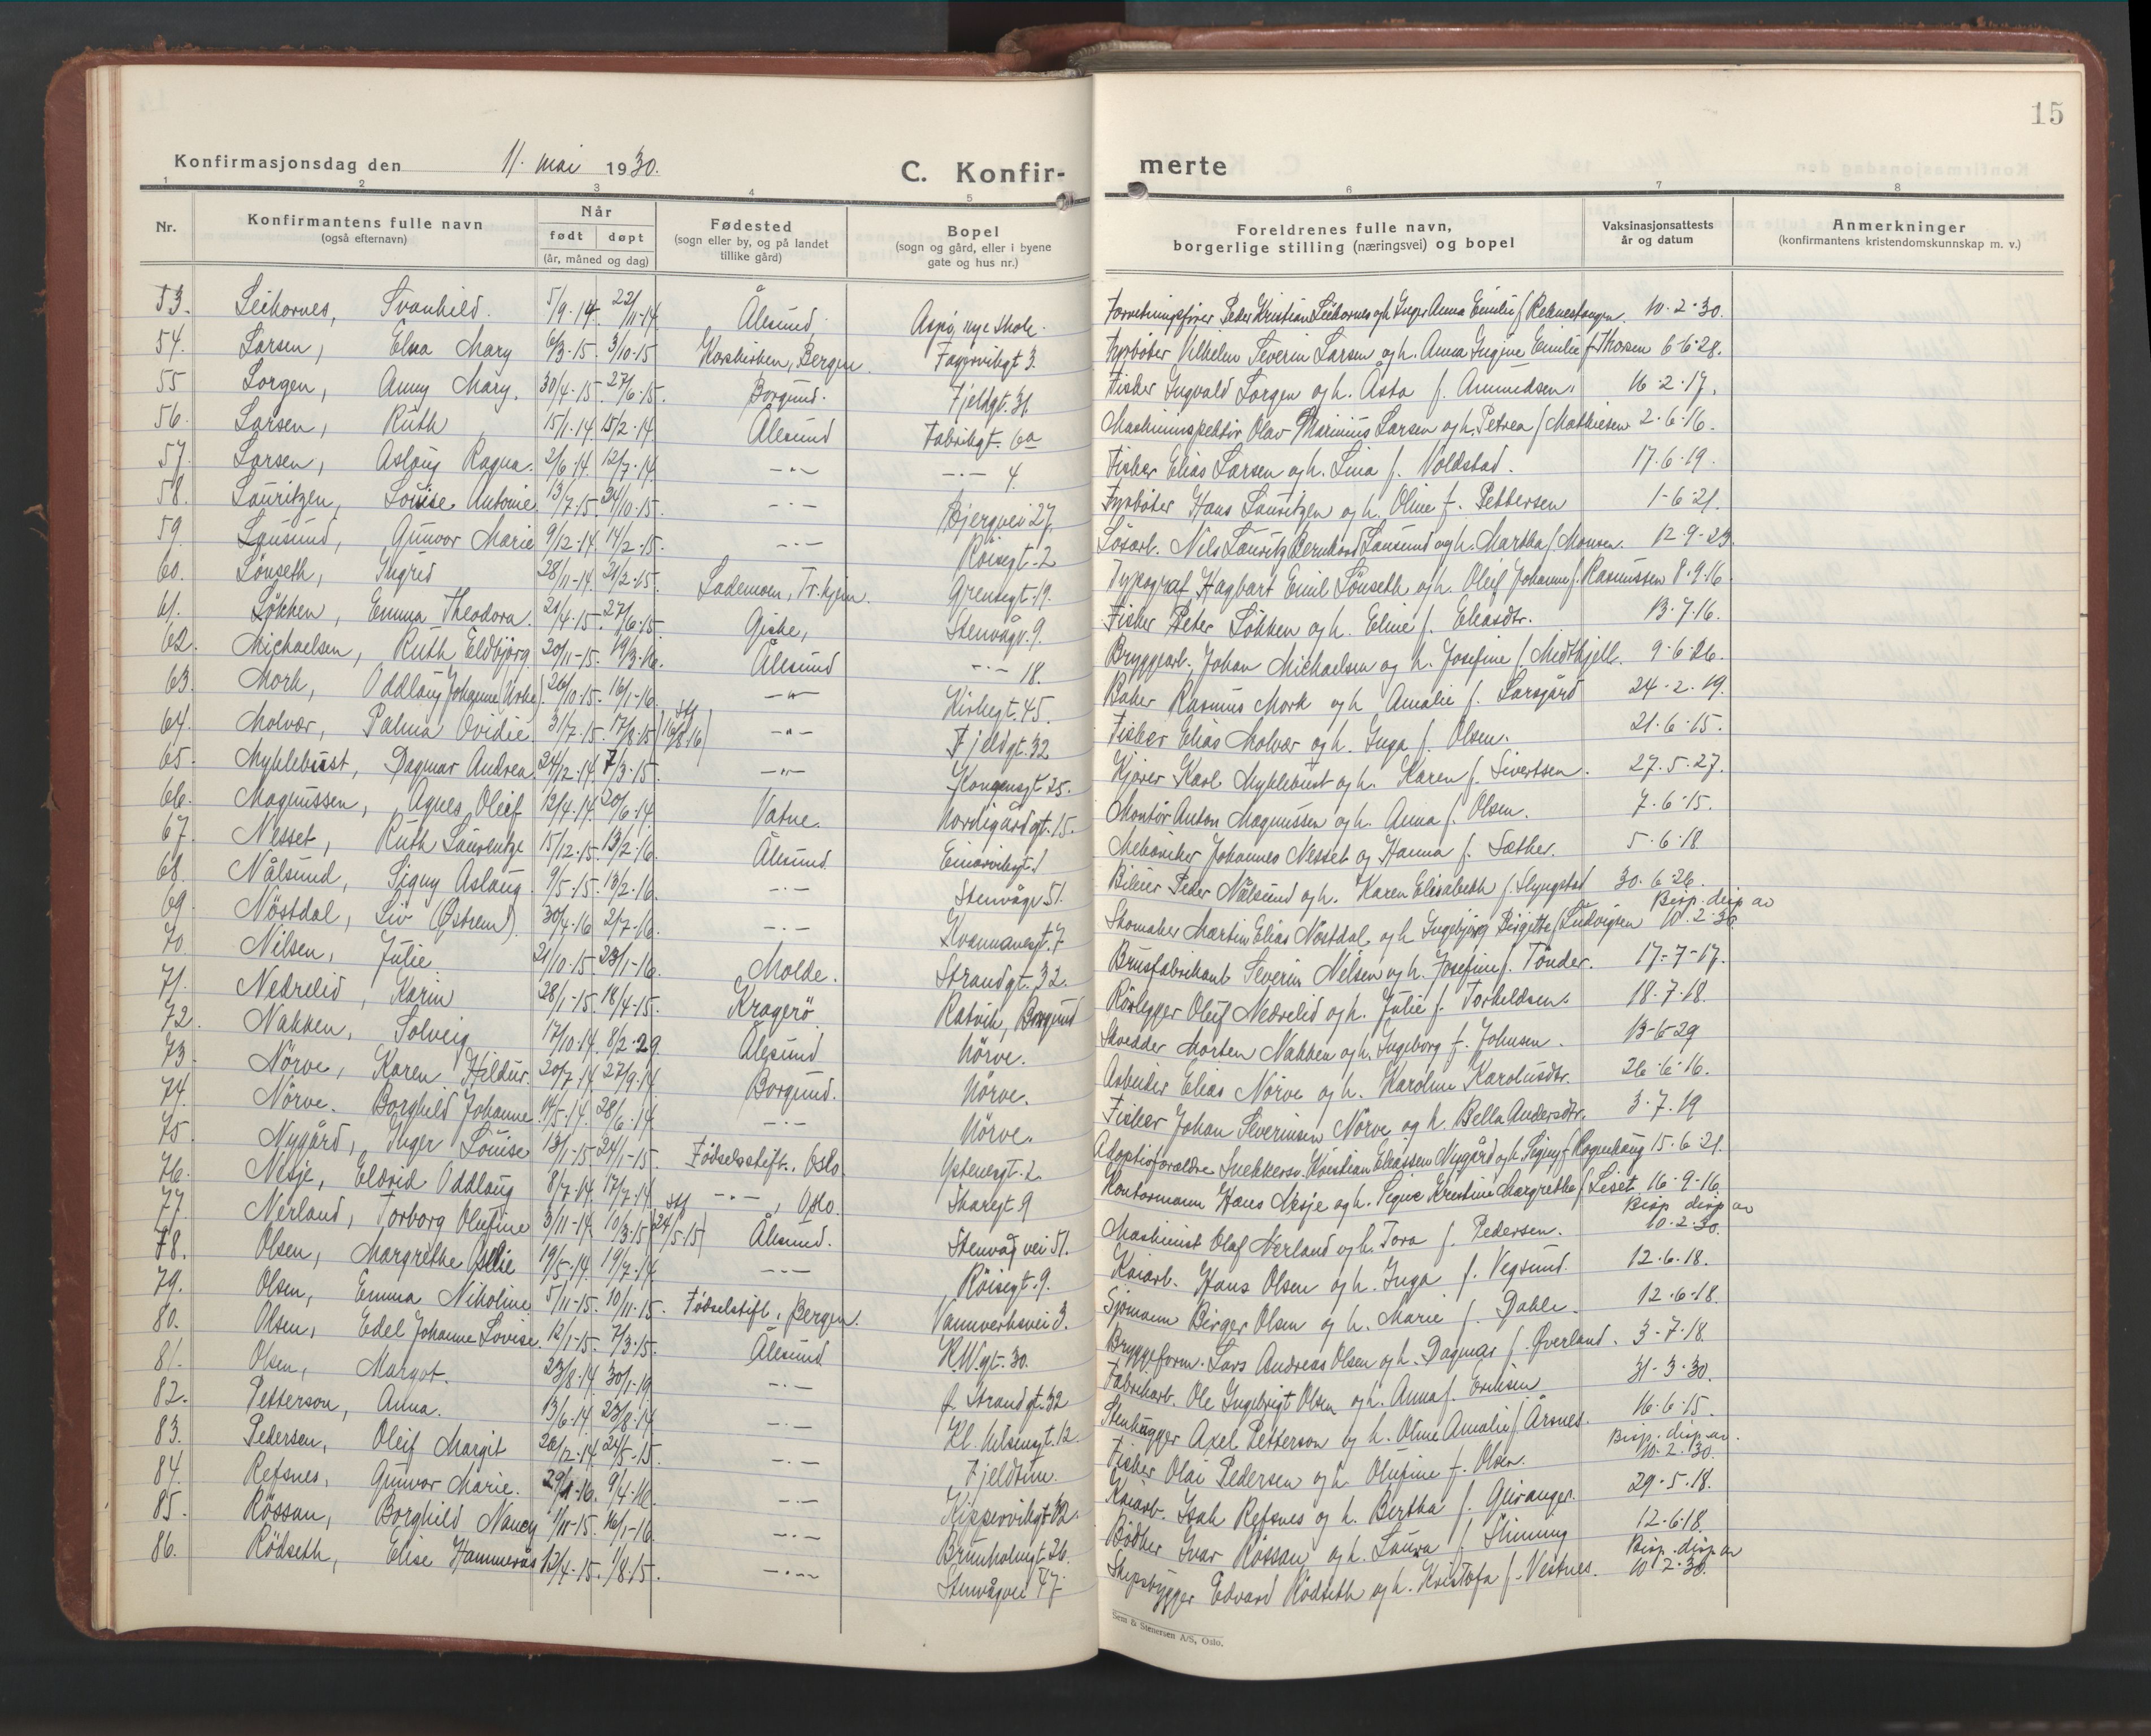 15
Konfirmasjonsdag den 11. mai 1930. C. Konfir- merte
1 2 3 4 5 6 7 8
Nr. Konfirmantens fulle navn (også efternavn) Når født døpt (år, måned og dag) Fødested (sogn eller by, og på landet tillike gård) Bopel (sogn og gård, eller i byene gate og hus nr.) Foreldrenes fulle navn, borgerlige stilling (næringsvei) og bopel Vaksinasjonsattests år og datum Anmerkninger (konfirmantens kristendomskunnskap m. v.)
53. Leikornes, Svanhild. 5/9-14. 22/11-14. Ålesund, Aspö, nye skole. Forretningsfører Peder Kristian Leikornes og h. Inger Anna Emilie f. 10-2-30.
54. Larsen, Elsa Mary 6/3-15. 3/10-15 Korskirken, Bergen. 3. Fyrböter Vilhelm Severin Larsen og h. Anna Ingine Emilie f. Thorsen 6-6-28.
55 Lorgen, Anny Mary. 30/4-15. 27/6-15. Borgund. Fjeldgt. 31. Fisker Ingvald Lorgen og h. Åsta f. Amundsen. 16-2-17.
56. Larsen, Ruth 15/1-14. 15/2-14. Ålesund Fabrikgt. 6a Maskininspektör Olav Marinius Larsen og h. Petrea f. Mathiesen 2-6-16.
57. Larsen, Aslaug Ragna. 2/6-14. 12/7-14. -"- -"- 4 Fisker Elias Larsen og h. Lina f. Voldstad. 17-6-19.
58. Lauritzen, Louise Antonie 13/7-15. 24/10-15. -"- Bjergvei 27. Fyrböter Hans Lauritzen og h. Oline f. Pettersen 1-6-21.
59. Lausund, Gunvor Marie 9/12-14. 14/2-15. -"- Röisegt. 2 Lösarb. Nils Lauritz Bernhard Lausund og h. Martha f. Monsen. 12-9-23.
60. Lönseth, Ingrid 28/11-14. 21/2-15. Lademoen, Tr.hjem. Grensegt. 19. Typograf Hagbart Emil Lönseth og h. Oleif Johanne f. Rasmussen 8-9-16
61. Lökken, Emma Theodora. 21/4-15. 27/6-15. Giske, Stenvågv. 9. Fisker Peter Lökken og h. Eline f. Eliasdtr. 13-7-16.
62. Michaelsen, Ruth Eldbjörg 20/11-15. 19/3-16. Ålesund -"- 18. Bryggearb. Johan Michaelsen og h. Josefine f. Midtkjell. 9-6-26.
63. Mork, Oddlaug Johanne 26/10-15. 16/1-16. -"- Kirkegt. 45. Baker Rasmus Mork og h. Amalie f. Larsgård 24-2-19.
64. Molvær, Palma Ovidie 31/7-15. 17/8-15 (16/8-16) -"- Fjeldgt. 32 Fisker Elias Molvær og h. Inga f. Olsen. 21-6-15.
65. Myklebust, Dagmar Andrea 24/12-14. 7/3-15. -"- Kongensgt 25. Kjörer Karl Myklebust og h. Karen f. Sivertsen. 27-5-27.
66. Magnussen, Agnes Oleif 12/4-14. 20/6-14. Vatne. Nordigårdgt. 15. Montör Anton Magnussen og h. Anna f. Olsen. 7-6-15.
67. Nesset, Ruth Laurentze 15/12-15. 13/2-16. Ålesund Einarvikgt. 1 Mekaniker Johannes Nesset og Hanna f. Sæther. 5-6-18
68. Nålsund, Signy Aslaug. 9/5-15. 13/2-16. -"- Stenvågv. 51. Bileier Peder Nålsund og h. Karen Elisabeth f. Slyngstad 30-6-26.
69. Nöstdal, Liv (Östrem). 30/4-16 2/7-16. -"- Kvennanesgt. 7 Skomaker Martin Elias Nöstdal og h Ingebjörg Birgitte f. Ludvigsen Bisp. disp av 10-2-30.
70. Nilsen, Julie 21/10-15. 23/1-16. Molde. Strandgt. 32. Brusfabrikant Severin Nilsen og h. Josefine f. Tönder. 17-7-17.
71. Nedrelid, Karin 28/1-15. 18/4-15. Kragerö Ratvik, Borgund Rörlegger Oleif Nedrelid og h. Julie f. Torkeldsen. 18-7-18.
72. Nakken, Solveig 17/10-14. 8/2-29. Ålesund Nörve. Skredder Morten Nakken og h. Ingeborg f. Johnsen. 13-6-29
73. Nörve, Karen Hildur. 20/7-14 27/9-14 Borgund. Nörve. Arbeider Elias Nörve og h. Karoline Karolusdtr. 26-6-16.
74. Nörve. Borghild Johanne. 14/5-14. 28/6-14 -"- Nörve. Fisker Johan Severinsen Nörve og h. Bella Andersdtr. 3-7-19
75. Nygård, Inger Louise 13/1-15. 24/1-15. Födselsstift., Oslo Ystenesgt. 2. Adoptivforeldre Snekkersv. Kristian Eliassen Nygård og h. Signy f. Rogenhaug 15-6-21.
76. Nesje, Eldrid Oddlaug 8/7-14. 17/7-14 -"-, Oslo. Skaregt 9 Kontormann Hans Nesje og h. Signe Kristine Margrethe f. Liset 16-9-16.
77. Nerland, Torborg Olufine 3/11-14. 10/3-15 (24/5-15) Ålesund. Stenvåg vei 51. Maskinist Olaf Nerland og h. Tora f. Pedersen. Bisp disp av 10-2-30.
78. Olsen, Margrethe 19/5-14. 19/7-14 -"- Röisegt. 9. Kaiarb. Hans Olsen og h. Inga f. Vegsund. 12-6-18.
79. Olsen, Emma Nikoline 5/11-15. 10/11-15. Födselstift, Bergen. Vannverksvei 3. Sjömann Birger Olsen og h. Marie f. Dahle. 12-6-18.
80. Olsen, Edel Johanne Lovise. 12/1-15. 7/3-15. Ålesund K.W.gt. 30. Bryggeform. Lars Andreas Olsen og h. Dagmar f. Överland. 3-7-18
81. Olsen, Margot. 23/8-14. 30/1-19 -"- Strandgt. 32 Fabrikarb. Ole Ingebrigt Olsen og h. Anna f. Eriksen 31-3-30.
82. Petterson, Anna. 13/6-14. 23/8-14 -"- Kl. Nilsensgt. 12. Stenhugger Axel Petterson og h. Oline Amalie f. Årsnes. 16-6-15.
83. Pedersen, Oleif Margit 26/12-14. 24/5-15. -"- Fjeldtun. Fisker Olai Pedersen og h. Olufine f. Olsen. Bisp. disp. av. 10-2-30.
84. Refsnes, Gunvor Marie. 29/1-16. 9/4-16. -"- Kipervikgt 12. Kaiarb. Isak Refsnes og h. Bertha f. Geiranger. 29-5-18.
85. Rössan, Borghild Nancy 1/11-15. 16/1-16 -"- Brunholmgt. 26. Bödker Ivar Rössan og h. Laura f. Slinning 12-6-18.
86. Rödseth, Elise Hammerås 12/4-15. 1/8-15. -"- Stenvågvei 47. Skipsbygger Edvard Rödseth og h. Kristofa f. Vestnes. Bisp. disp av 10-2-30.
Sem & Stenersen A/S, Oslo.